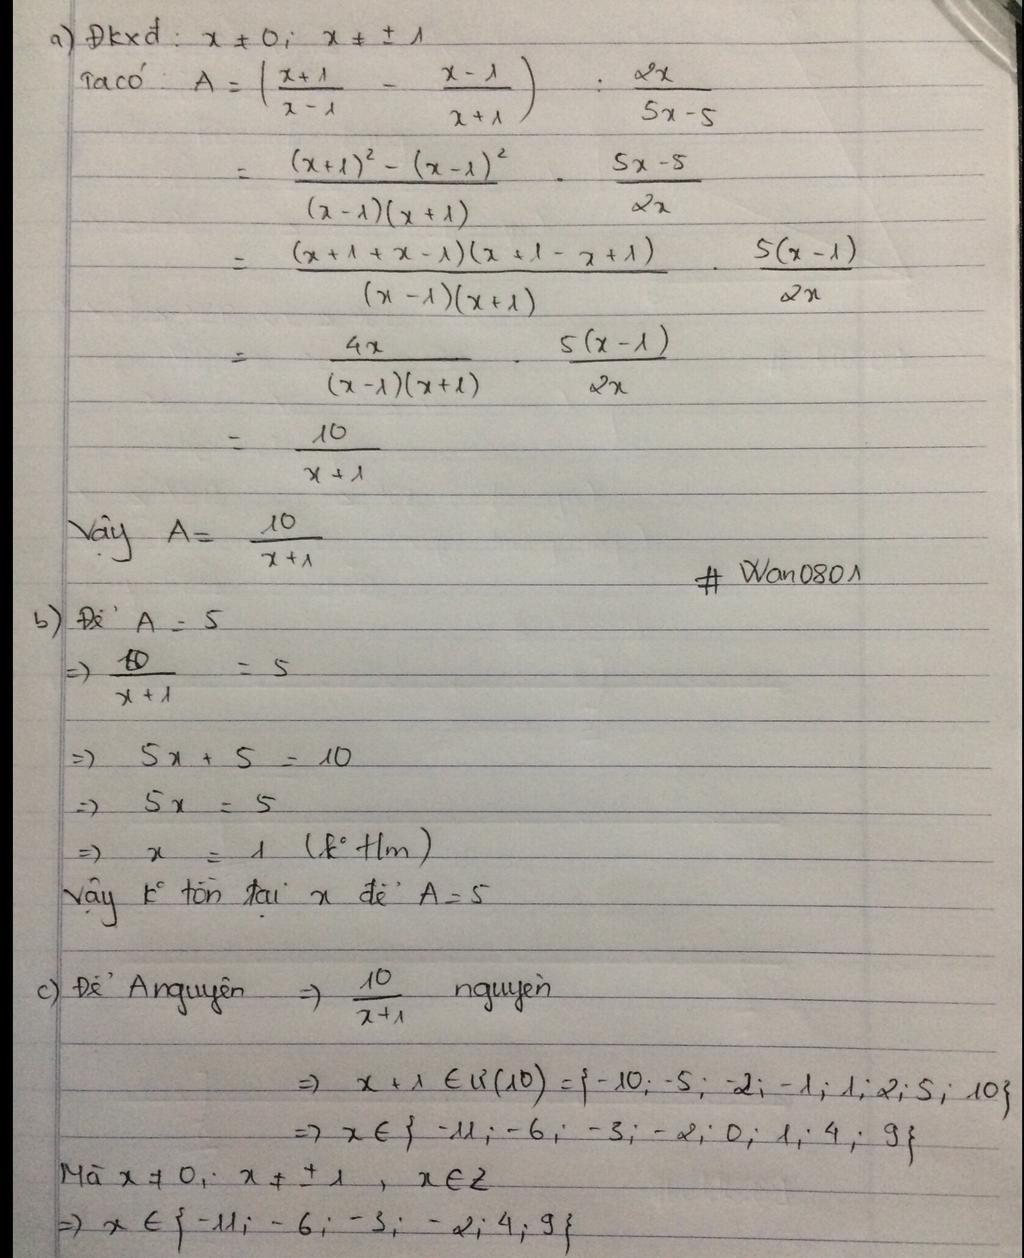 a) Đkxđ: x ≠ 0; x ≠ ± 1
Ta có A = ( (x+1)/(x-1) - (x-1)/(x+1) ) : 2x/(5x-5)
= ((x+1)² - (x-1)²)/((x-1)(x+1)) . (5x-5)/(2x)
= ((x+1+x-1)(x+1-x+1))/((x-1)(x+1)) . 5(x-1)/(2x)
= 4x/((x-1)(x+1)) . 5(x-1)/(2x)
= 10/(x+1)
Vậy A = 10/(x+1)
# Wan0801
b) Để A = 5
=> 10/(x+1) = 5
=> 5x + 5 = 10
=> 5x = 5
=> x = 1 (k° t/m)
Vậy k° tồn tại x để A = 5
c) Để A nguyên => 10/(x+1) nguyên
=> x + 1 ∈ Ư(10) = {-10; -5; -2; -1; 1; 2; 5; 10}
=> x ∈ { -11; -6; -3; -2; 0; 1; 4; 9}
Mà x ≠ 0; x ≠ ± 1, x ∈ Z
=> x ∈ {-11; -6; -3; -2; 4; 9}